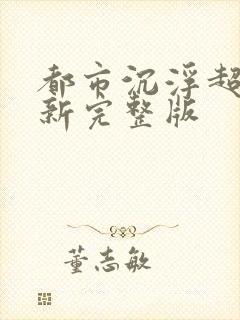 都市沉浮超
新完整版
董志敏